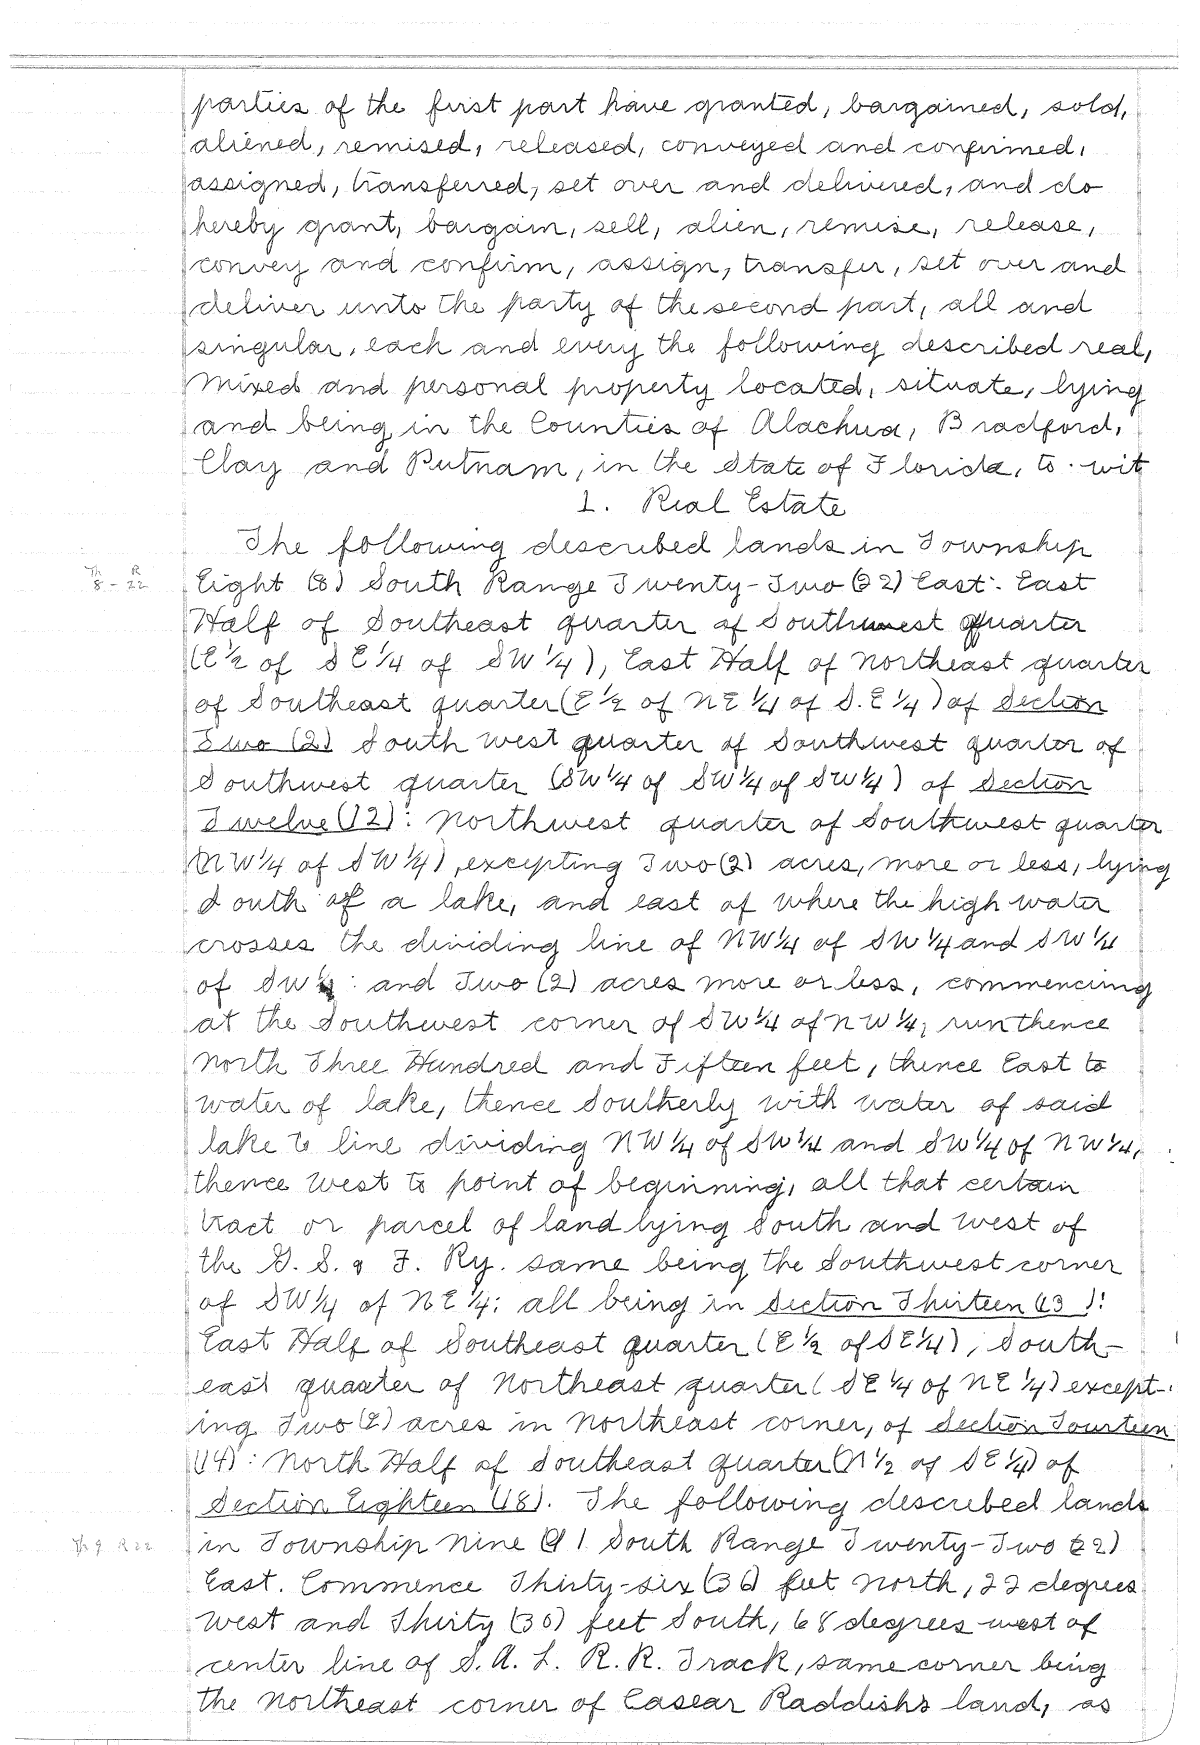 parties of the first part have granted, bargained, sold,
aliened, remised, released, conveyed and confirmed,
assigned, transferred, set over and delivered, and do
hereby grant, bargain, sell, alien, remise, release,
convey and confirm, assign, transfer, set over and
deliver unto the party of the second part, all and
singular, each and every the following described real,
mixed and personal property located, situate, lying
and being in the Counties of Alachua, Bradford,
Clay and Putnam, in the State of Florida, to-wit
1. Real Estate
The following described lands in Township
8 - 22
Eight (8) South Range Twenty-Two (22) East: East
Half of Southeast quarter of Southwest quarter
(E½ of SE¼ of SW¼), East Half of Northeast quarter
of Southeast quarter (E½ of NE¼ of S.E¼) of Section
Two (2) South west quarter of Southwest quarter of
Southwest quarter (SW¼ of SW¼ of SW¼) of Section
Twelve (12): Northwest quarter of Southwest quarter
(NW¼ of SW¼), excepting Two (2) acres, more or less, lying
South of a lake, and east of where the high water
crosses the dividing line of NW¼ of SW¼ and SW¼
of SW¼: and Two (2) acres more or less, commencing
at the Southwest corner of SW¼ of NW¼, run thence
North Three Hundred and Fifteen feet, thence East to
water of lake, thence Southerly with water of said
lake to line dividing NW¼ of SW¼ and SW¼ of NW¼,
thence West to point of beginning, all that certain
tract or parcel of land lying South and West of
the G. S. & F. Ry. same being the Southwest corner
of SW¼ of NE¼; all being in Section Thirteen (13):
East Half of Southeast quarter (E½ of SE¼), South-
east quaater of Northeast quarter (SE¼ of NE¼) except-
ing Two (2) acres in Northeast corner, of Section Fourteen
(14): North Half of Southeast quarter (N½ of SE¼) of
Section Eighteen (18). The following described lands
Th 9 R 22
in Township Nine (9) South Range Twenty-Two (22)
East. Commence Thirty-six (36) feet North, 22 degrees
West and Thirty (30) feet South, 68 degrees west of
center line of S. A. L. R. R. Track, same corner being
the Northeast corner of Casear Raddish's land, as